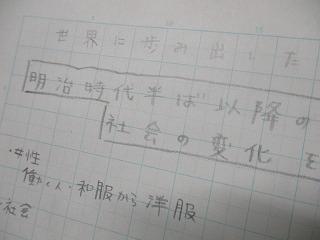 世界に歩み出した
明治時代半ば以降の
社会の変化を
・女性
働く人・和服から洋服
・社会